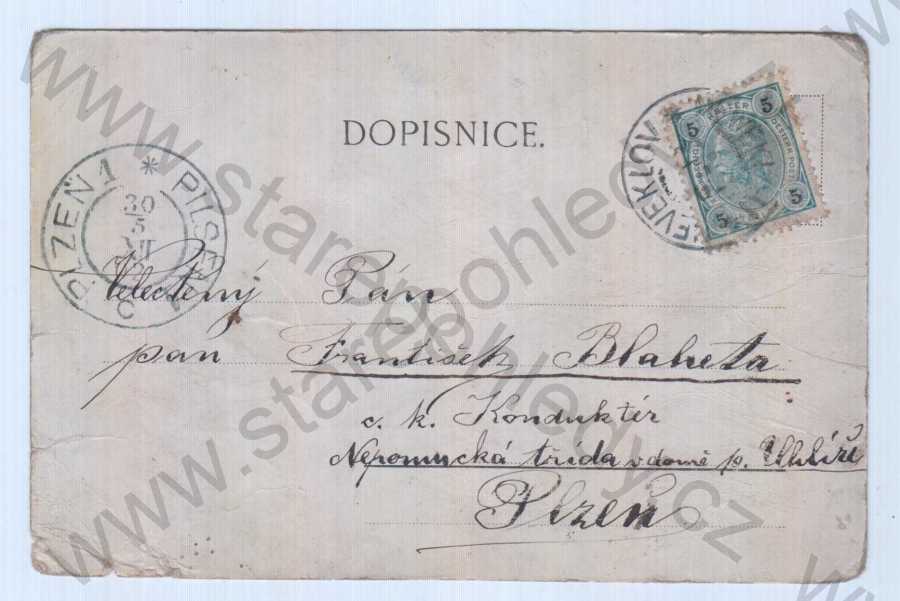 DOPISNICE.
5 5
5 5
NEVEKLOV
PLZEŇ 1 * PILSEN 1
30
5
VII
C
Velectěný Pán
pan František Blaheta
c. k. Konduktér
Nepomucká třída v domě p. Uhlíře
Plzeň
www.starepohledy.cz
www.starepohledy.cz